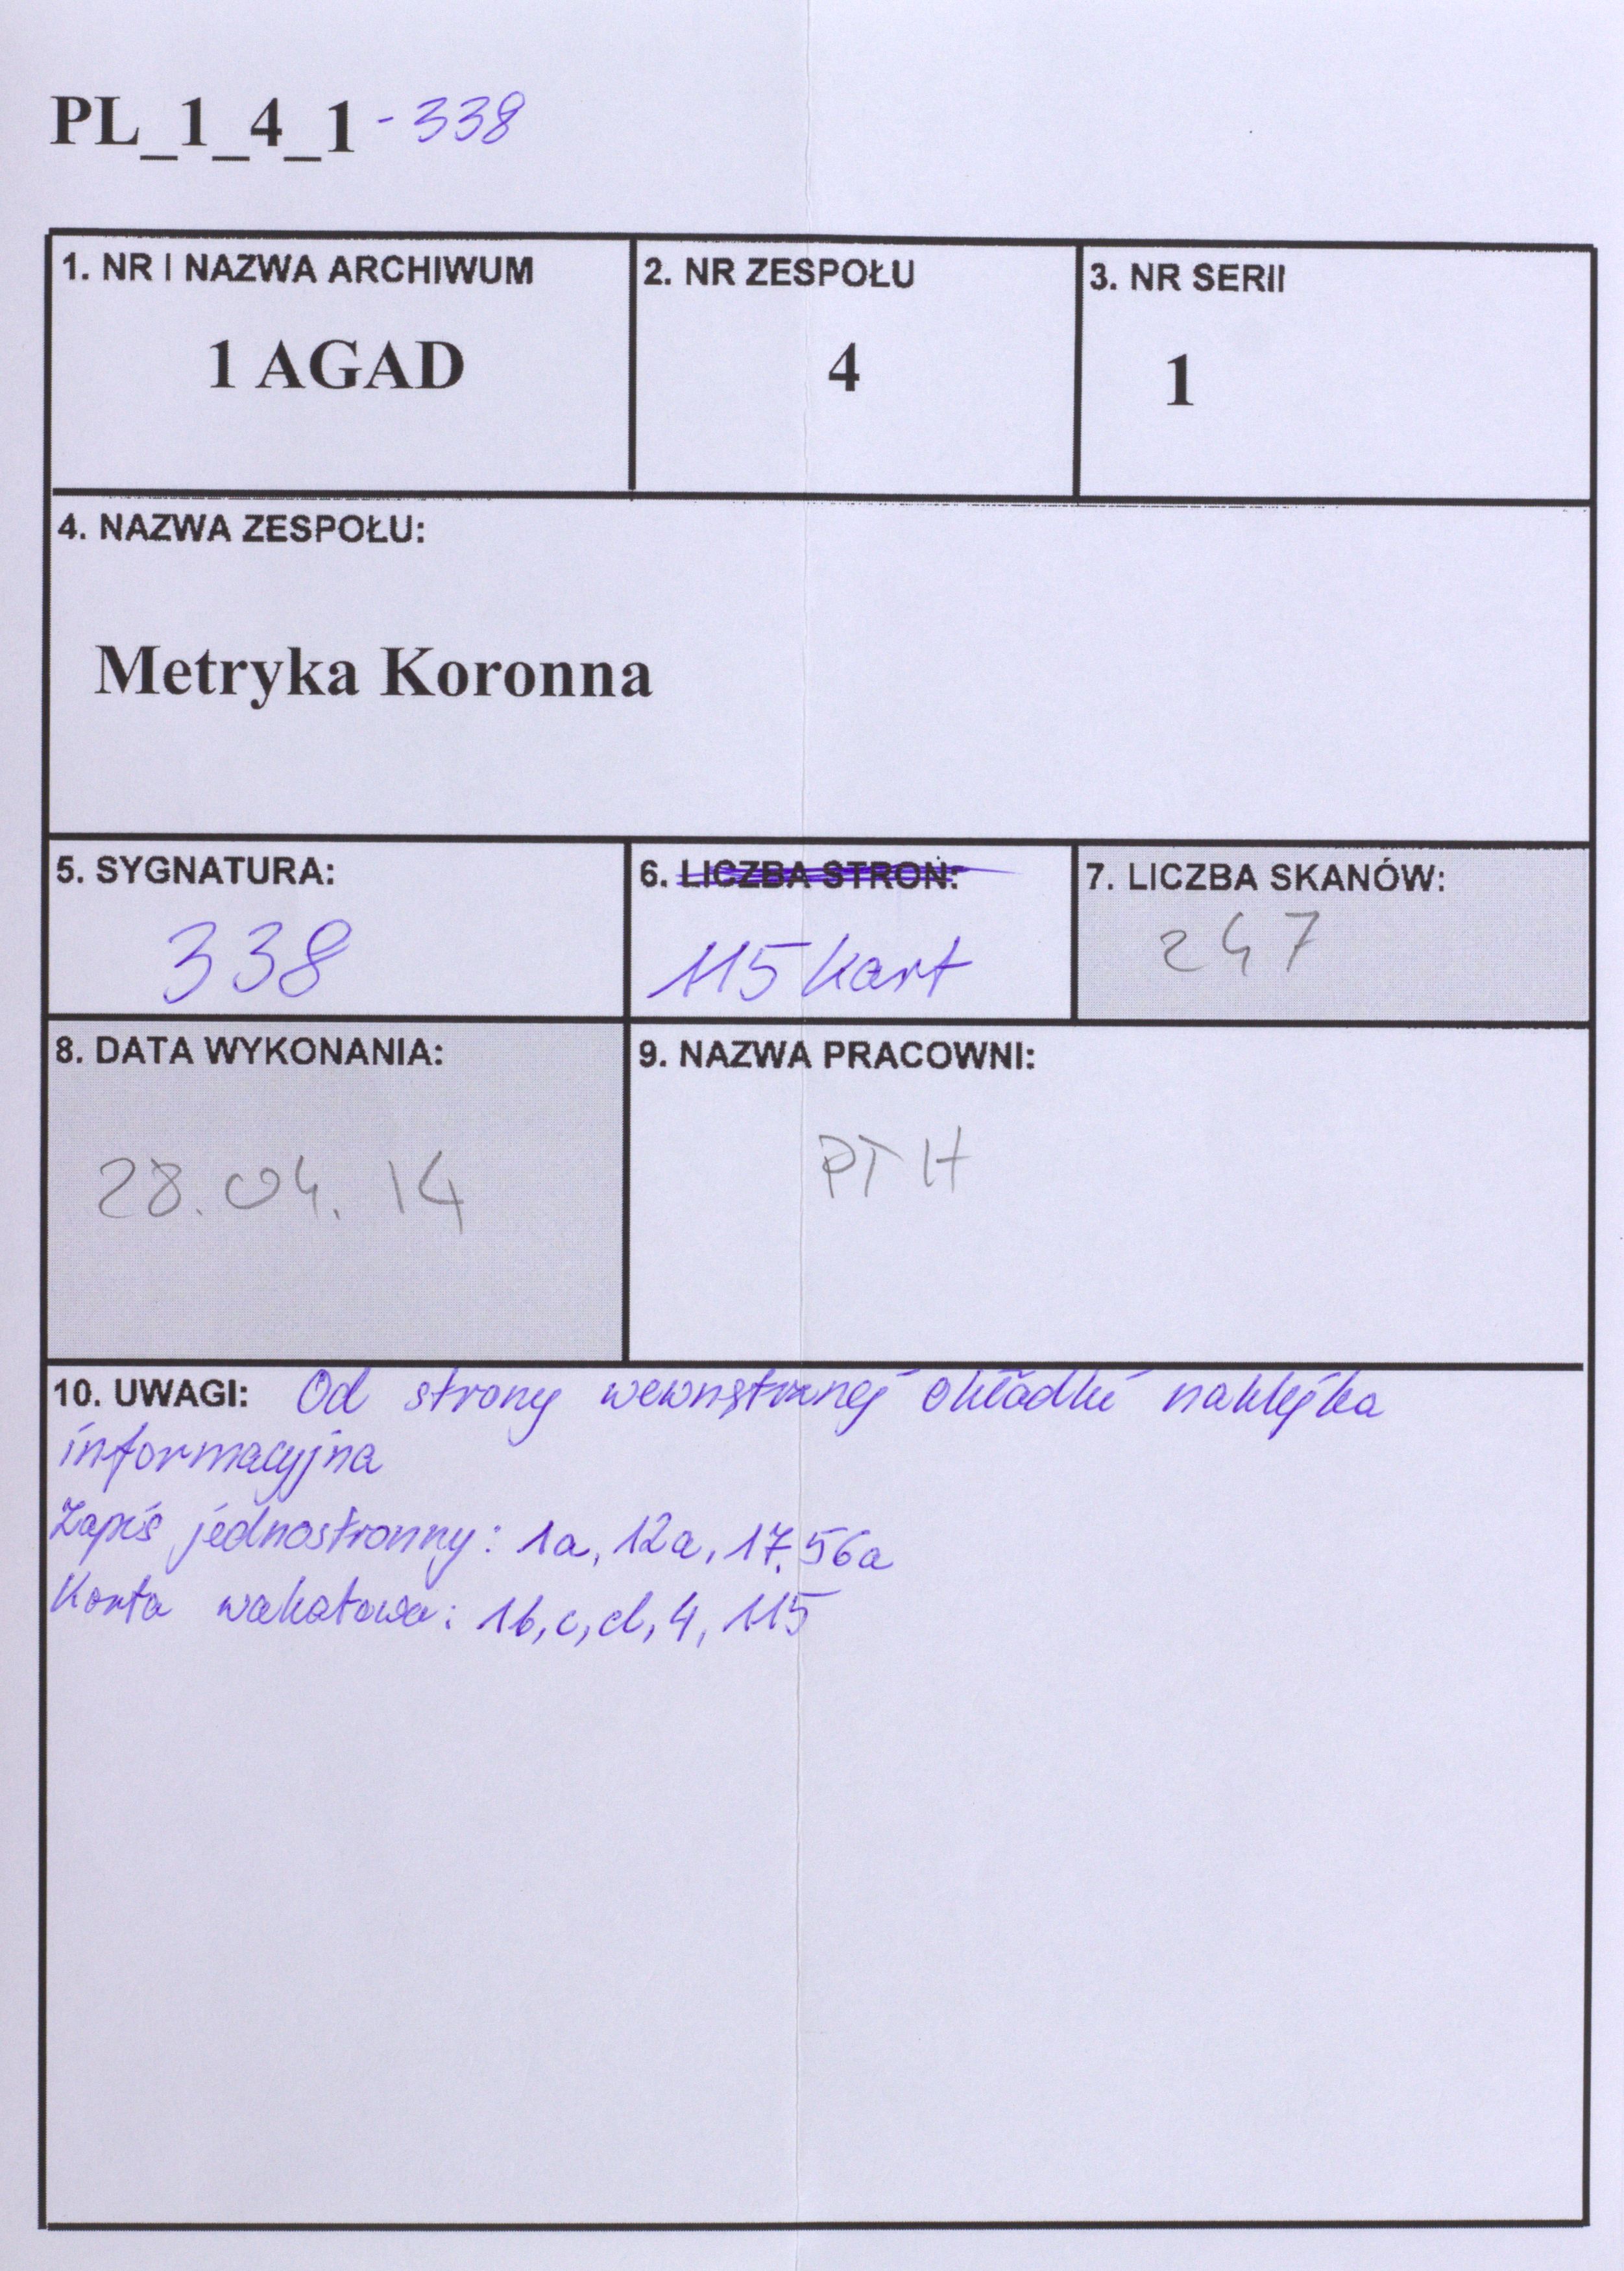 PL_1_4_1 - 338
1. NR I NAZWA ARCHIWUM
1 AGAD
2. NR ZESPOŁU
4
3. NR SERII
1
4. NAZWA ZESPOŁU:
Metryka Koronna
5. SYGNATURA:
338
6. LICZBA STRON:
115 kart
7. LICZBA SKANÓW:
247
8. DATA WYKONANIA:
28.04.14
9. NAZWA PRACOWNI:
PTH
10. UWAGI: Od strony wewnętrznej okładki naklejka
informacyjna
Zapis jednostronny: 1a, 12a, 17, 56a
Karta wakatowa: 1b, c, d, 4, 115